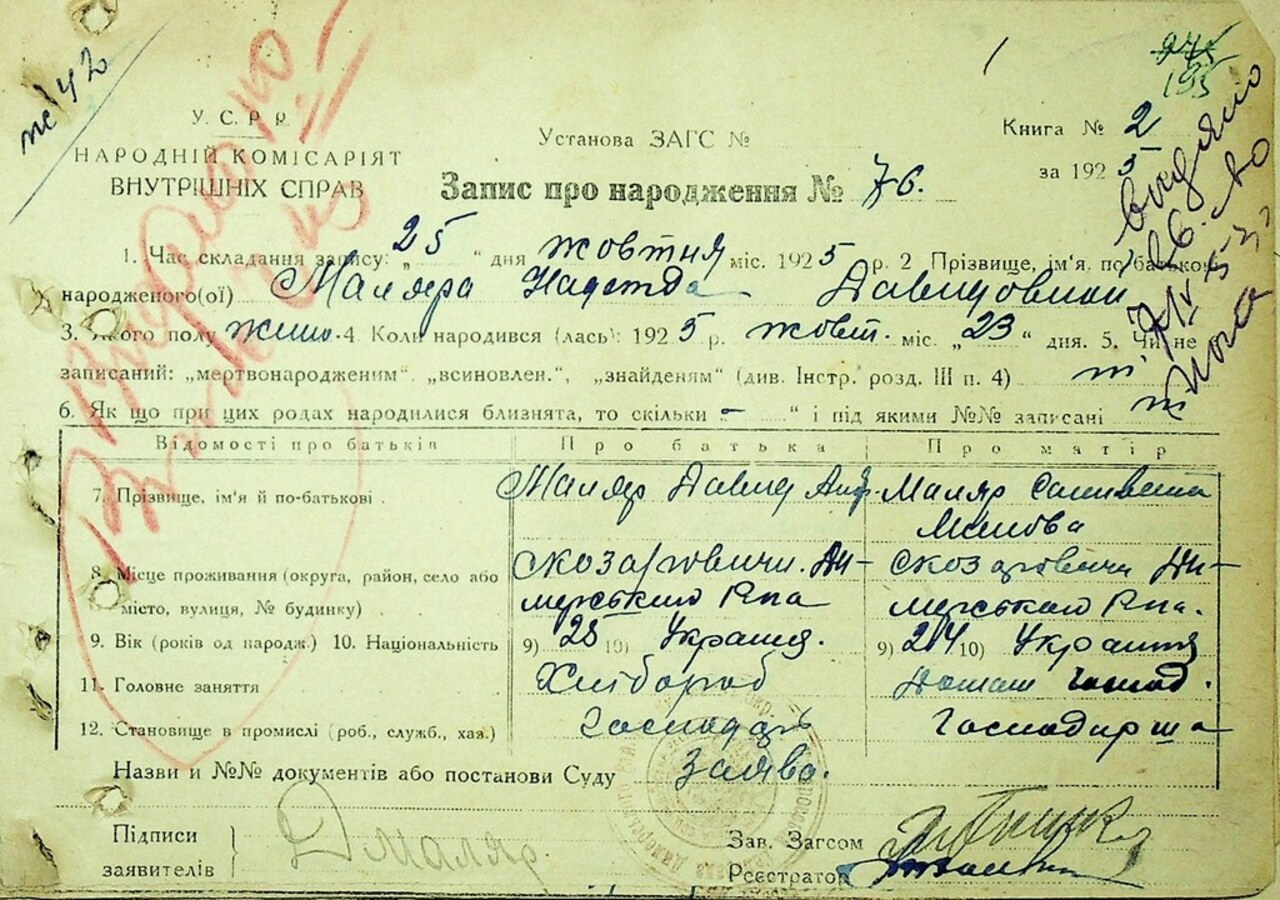 У. С. Р. Р.
НАРОДНІЙ КОМІСАРІЯТ
ВНУТРІШНІХ СПРАВ
Установа ЗАГС №
Книга № 2
за 1925
Запис про народження № 76.
1. Час складання запису: „25“ дня жовтня міс. 1925 р. 2 Прізвище, ім'я, по-батькові
народженого(ої) Маляра Надежда Давидовный
3. Якого полу жіно. 4. Коли народився (лась): 1925 р. жовт. міс. „23“ дня. 5. Чи не
записаний: „мертвонародженим“. „всиновлен.“, „знайденям“ (див. Інстр. розд. III п. 4)
6. Як що при цих родах народилися близнята, то скільки - “ і під якими №№ записані
Відомості про батьків Про батька Про матір
7. Прізвище, ім'я й по-батькові Маляр Давид Анд. Маляр Саливета
8. Місце проживання (округа, район, село або Скозаровичи. Ди- Скозаровичи Ди-
місто, вулиця, № будинку) мерського Р-на мерського Р-на.
9. Вік (років од народж.) 10. Національність 9) 25 10) Україн. 9) 24 10)
11. Головне заняття Хлібороб Домаш господ.
12. Становище в промислі (роб., служб., хаз.) Господарь Господарша
Назви и №№ документів або постанови Суду Заява.
Підписи
заявителів
Д Маляр.
Зав. Загсом
Рєєстратор